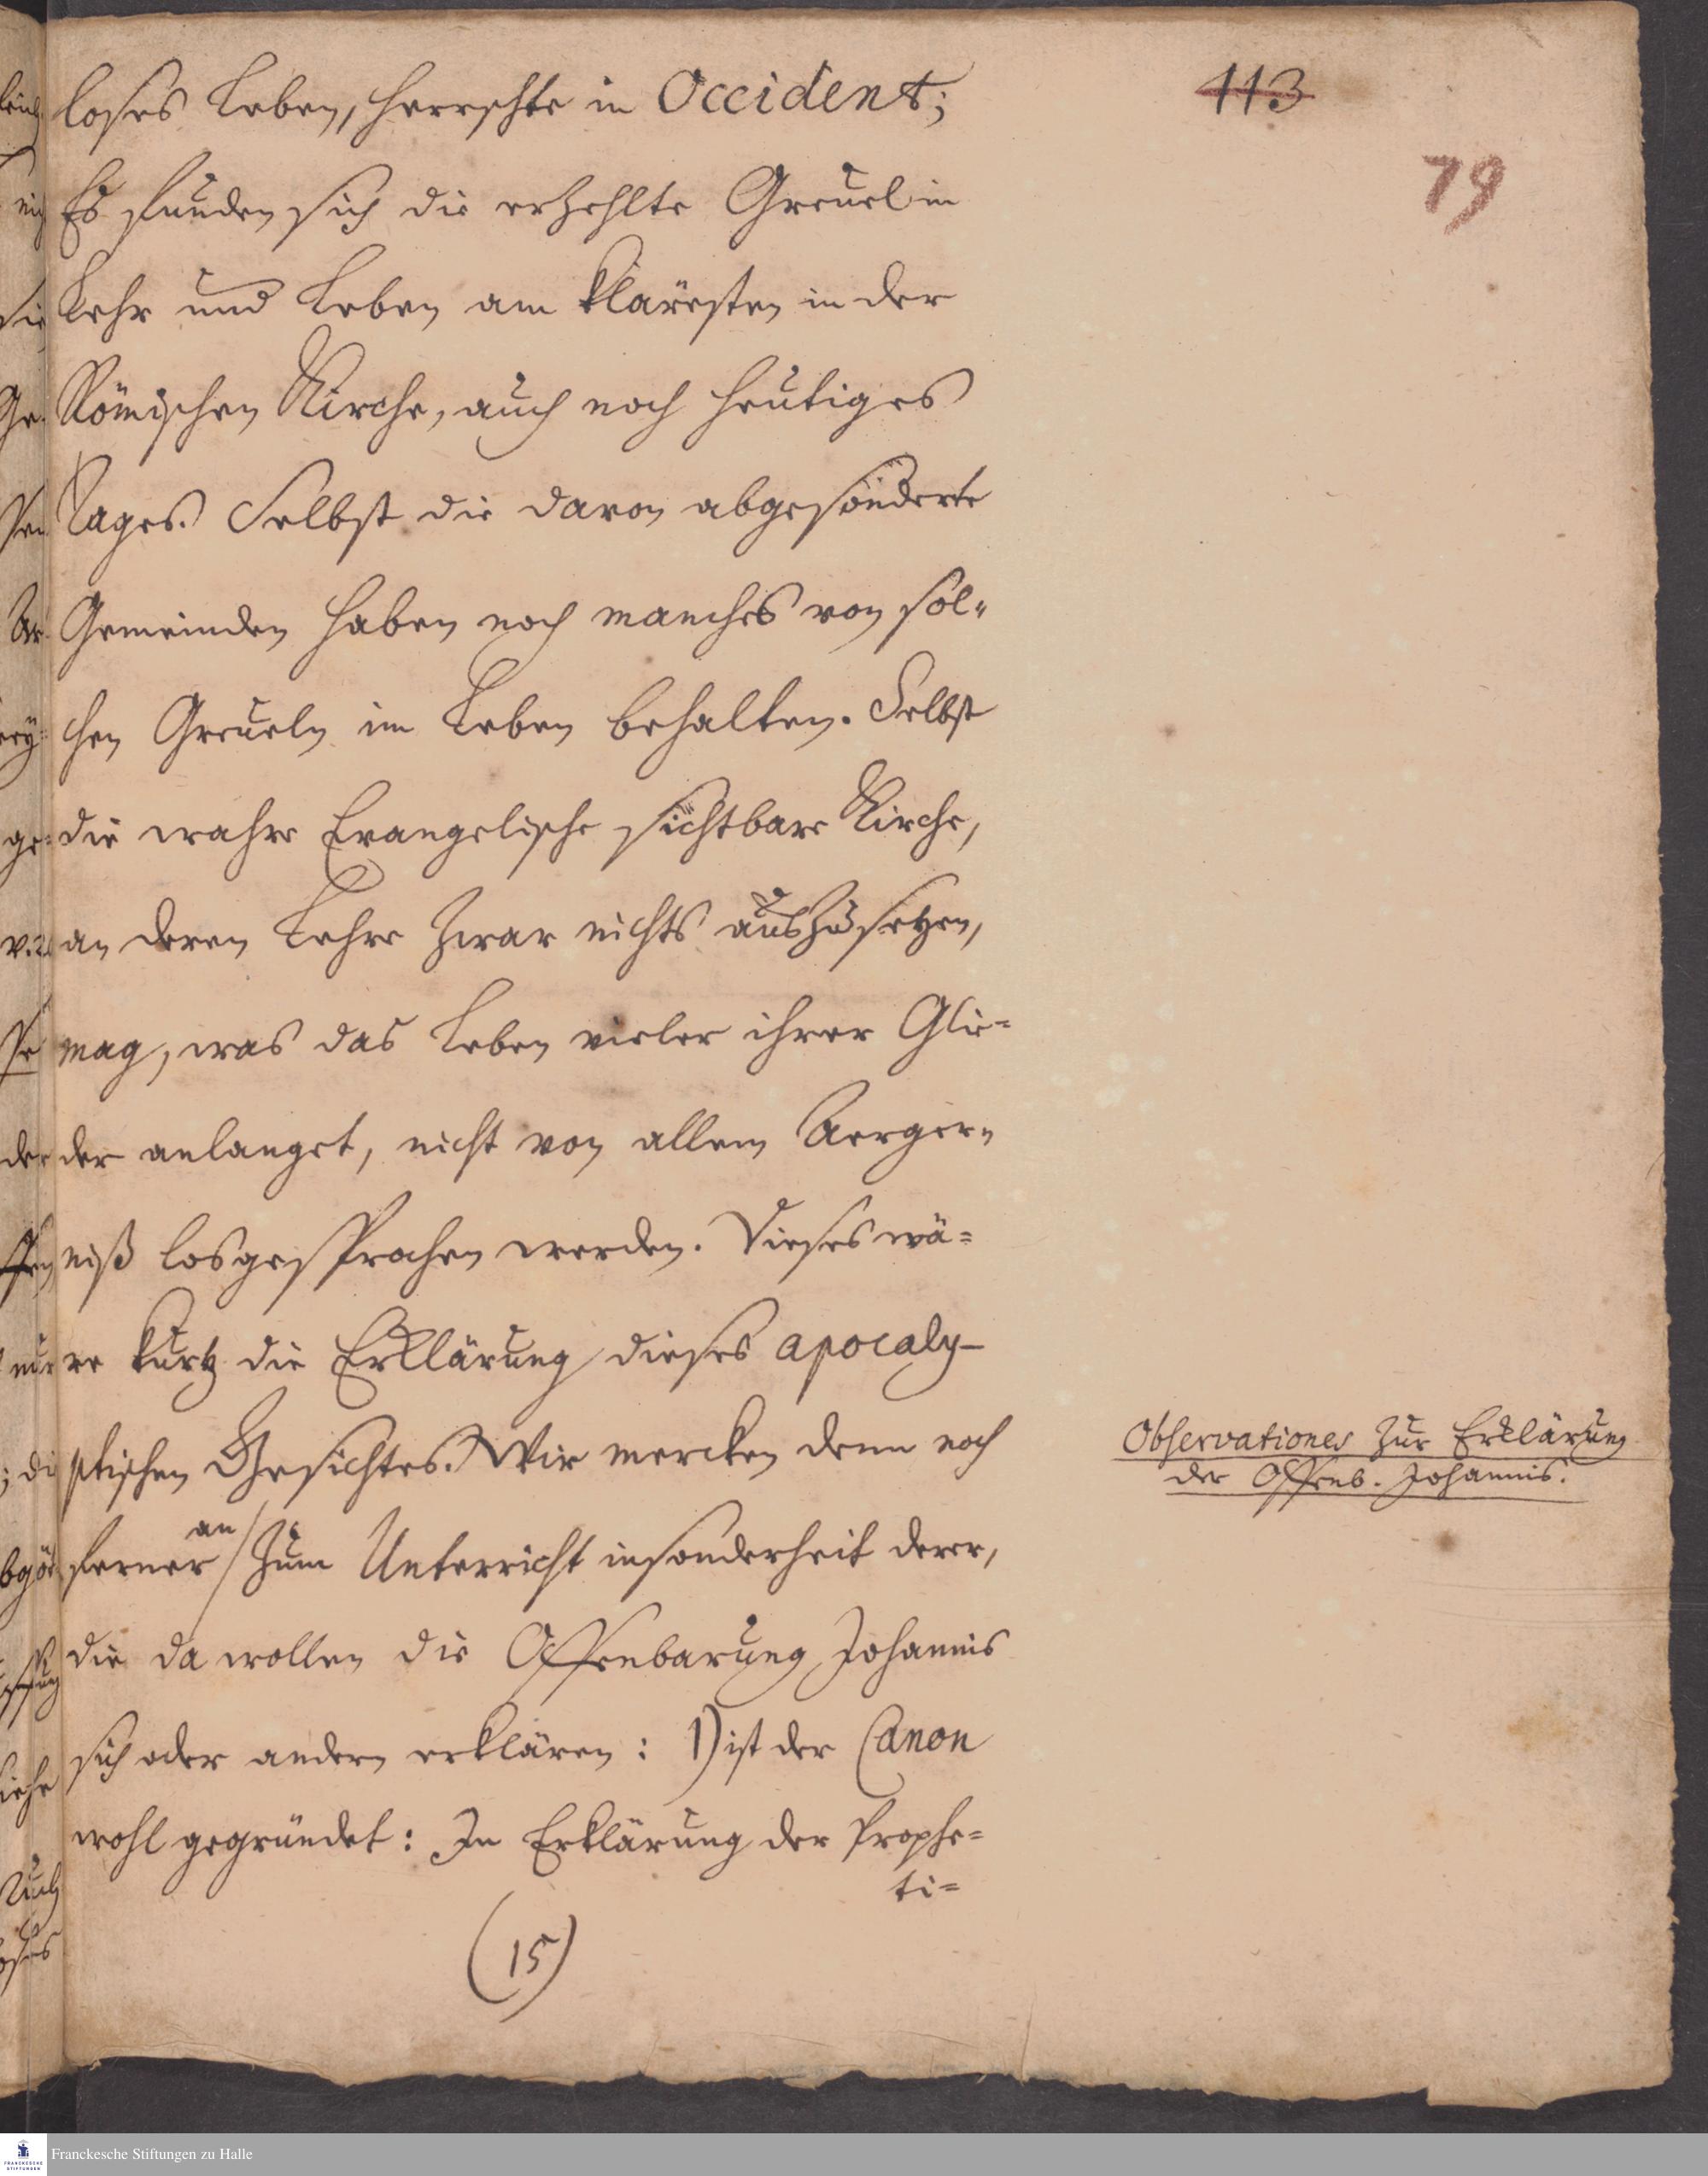 113
79
loses Leben, herrschte in Occident;
Es funden sich die erzehlte Greuel in
Lehr und Leben am kläresten in der
Römischen Kirche, auch noch heutiges
Tages. Selbst die davon abgesonderte
Gemeinden haben noch manches von sol-
chen Greueln im Leben behalten. Selbst
die wahre Evangelische sichtbare Kirche,
an deren Lehre zwar nichts auszusetzen,
mag, was das Leben vieler ihrer Glie-
der anlanget, nicht von allem Aerger-
niß losgesprochen werden. Dieses wä-
re kurtz die Erklärung dieses apocaly-
ptischen Gesichtes. Wir mercken denn noch
ferner an zum Unterricht insonderheit derer,
die da wollen die Offenbarung Johannis
sich oder andern erklären: 1) ist der Canon
wohl gegründet: In Erklärung der Prophe-
ti-
(15)
Observationes zur Erklärung
der Offenb. Johannis.
Franckesche Stiftungen zu Halle